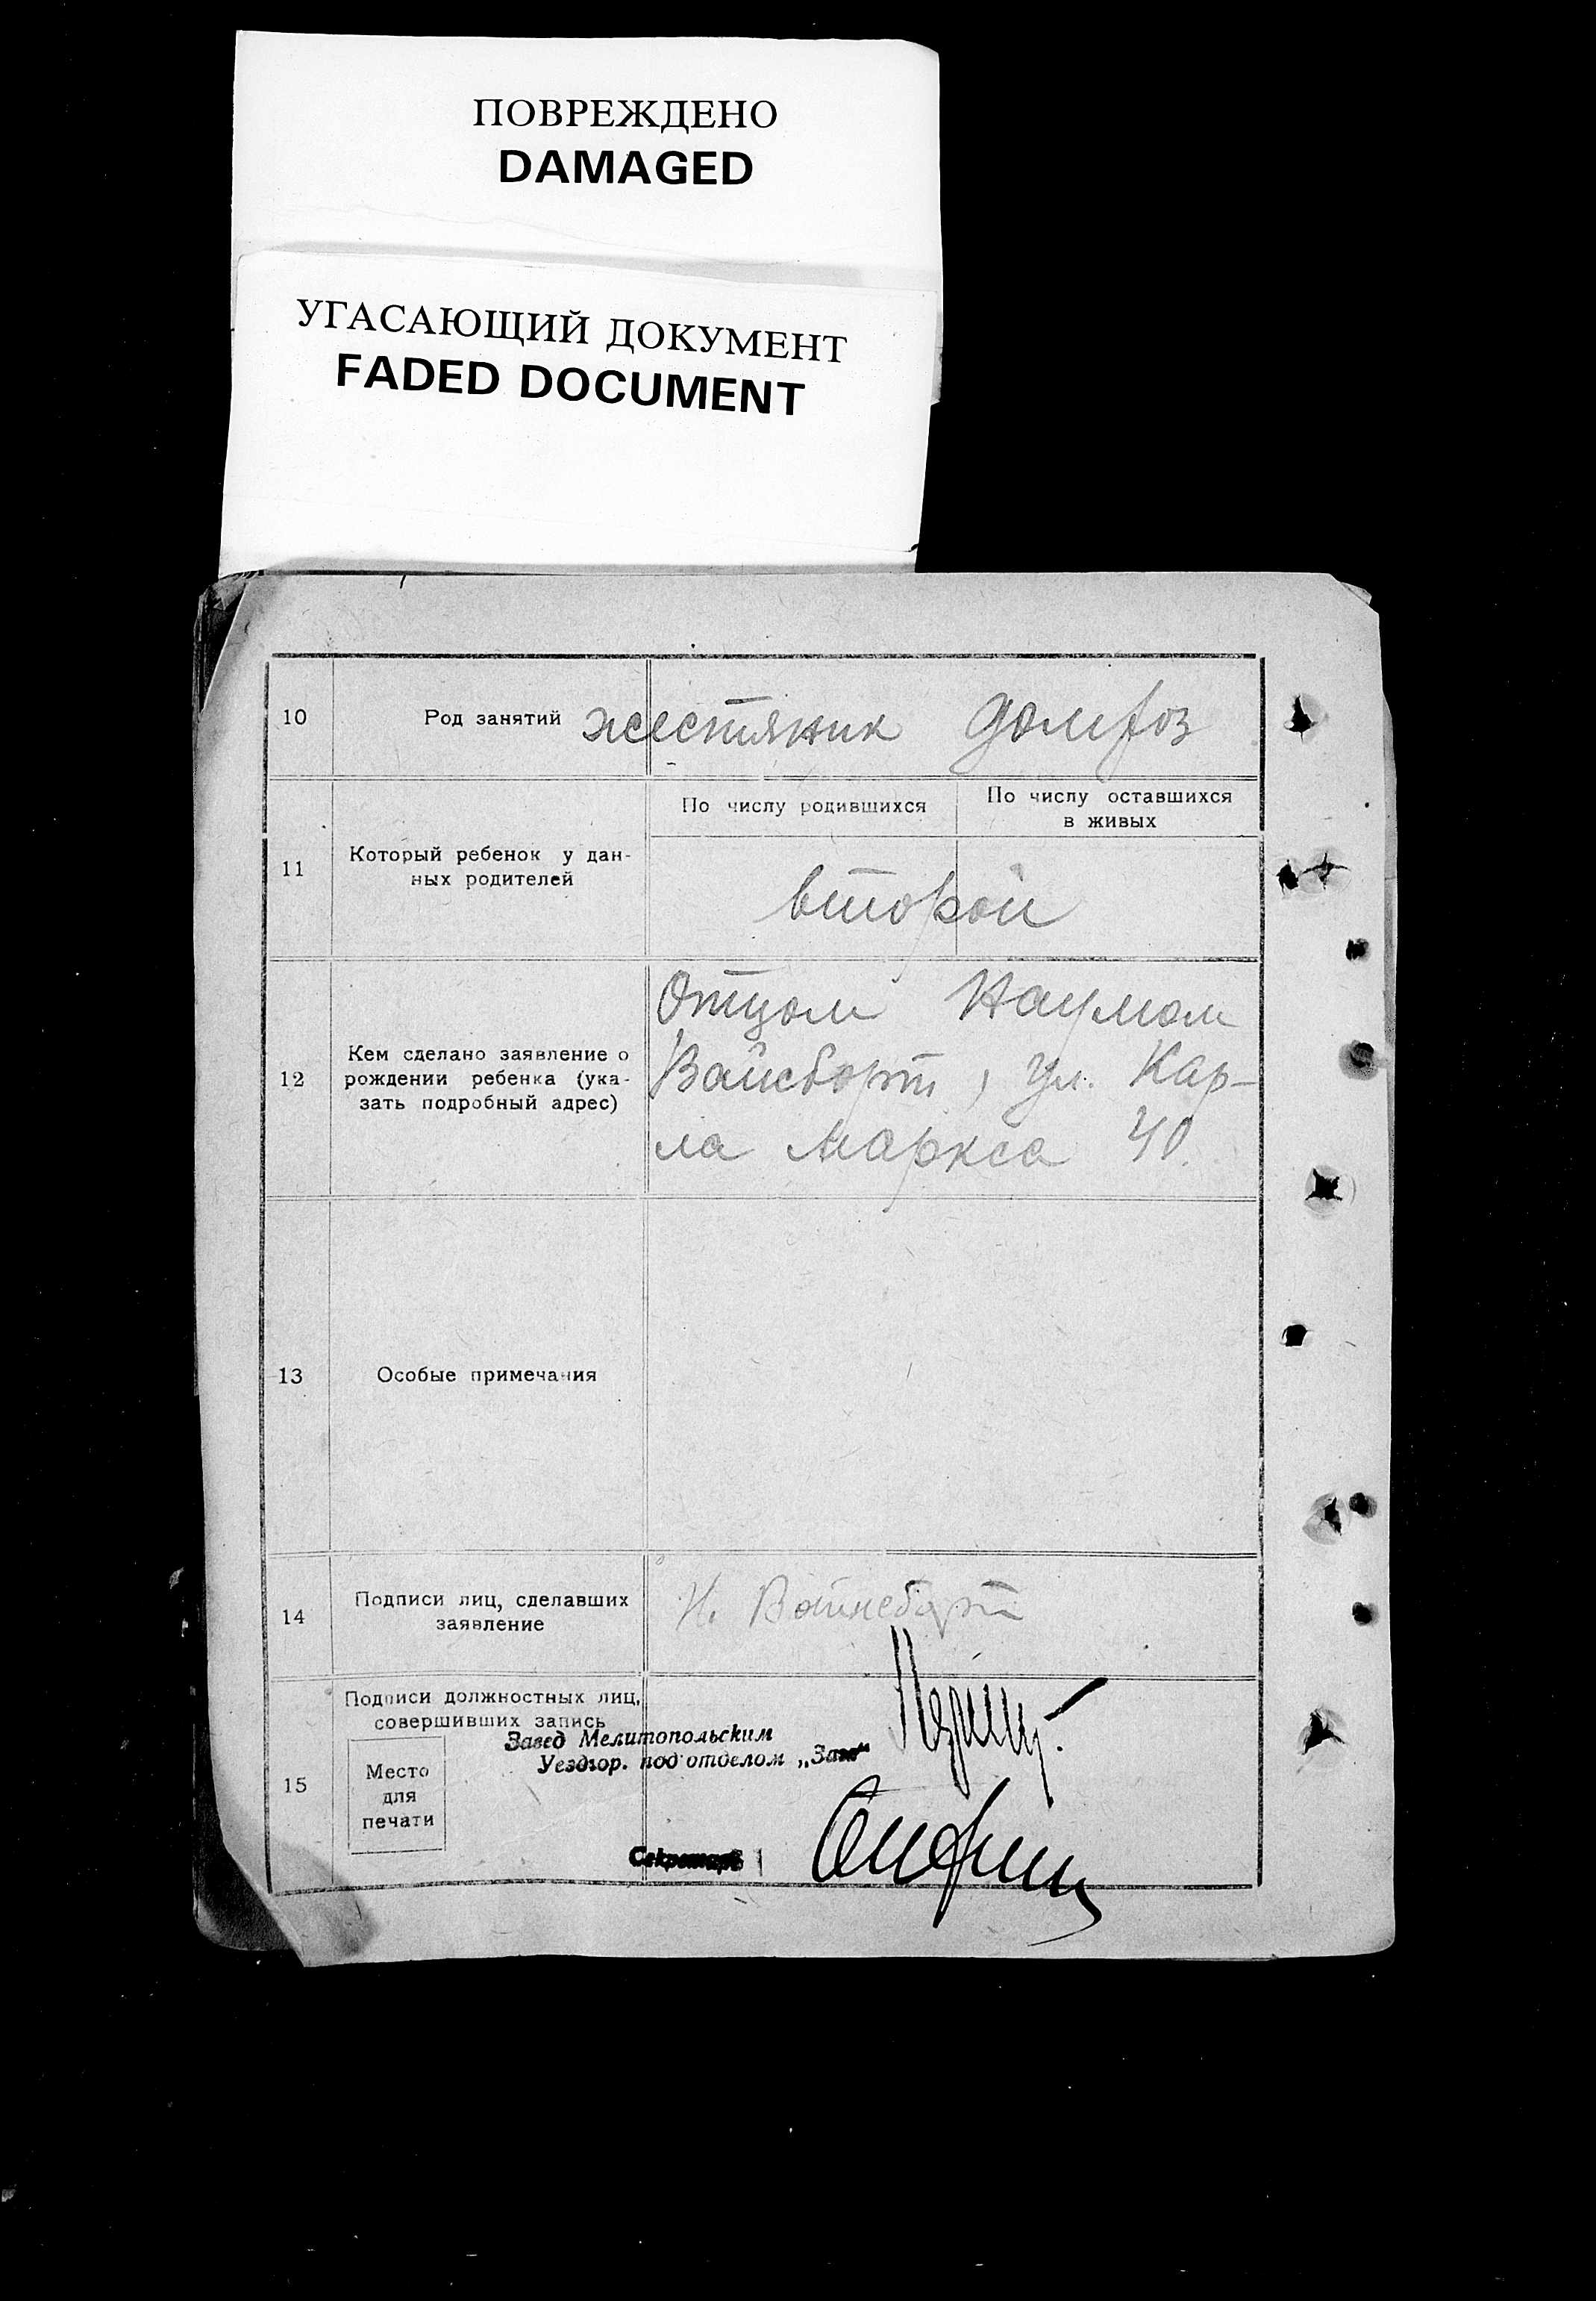 ПОВРЕЖДЕНО
DAMAGED
УГАСАЮЩИЙ ДОКУМЕНТ
FADED DOCUMENT
10 Род занятий жестяник домхоз
По числу родившихся По числу оставшихся
в живых
11 Который ребенок у дан-
ных родителей
второй
12 Кем сделано заявление о
рождении ребенка (ука-
зать подробный адрес)
Отцом Наумом
Вайсборт, ул. Кар-
ла Маркса 40.
13 Особые примечания
14 Подписи лиц, сделавших
заявление
Н. Вайнсборт
15 Подписи должностных лиц,
совершивших запись
Завед Мелитопольским
Уездгор. подотделом „Загс“
Место
для
печати
Секретарь